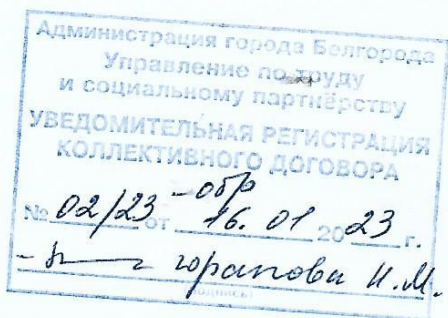 Администрация города Белгорода
Управление по труду
и социальному партнёрству
УВЕДОМИТЕЛЬНАЯ РЕГИСТРАЦИЯ
КОЛЛЕКТИВНОГО ДОГОВОРА
№ 02/23-обр от 16.01 2023 г.
Горапова И.М.
(подпись)